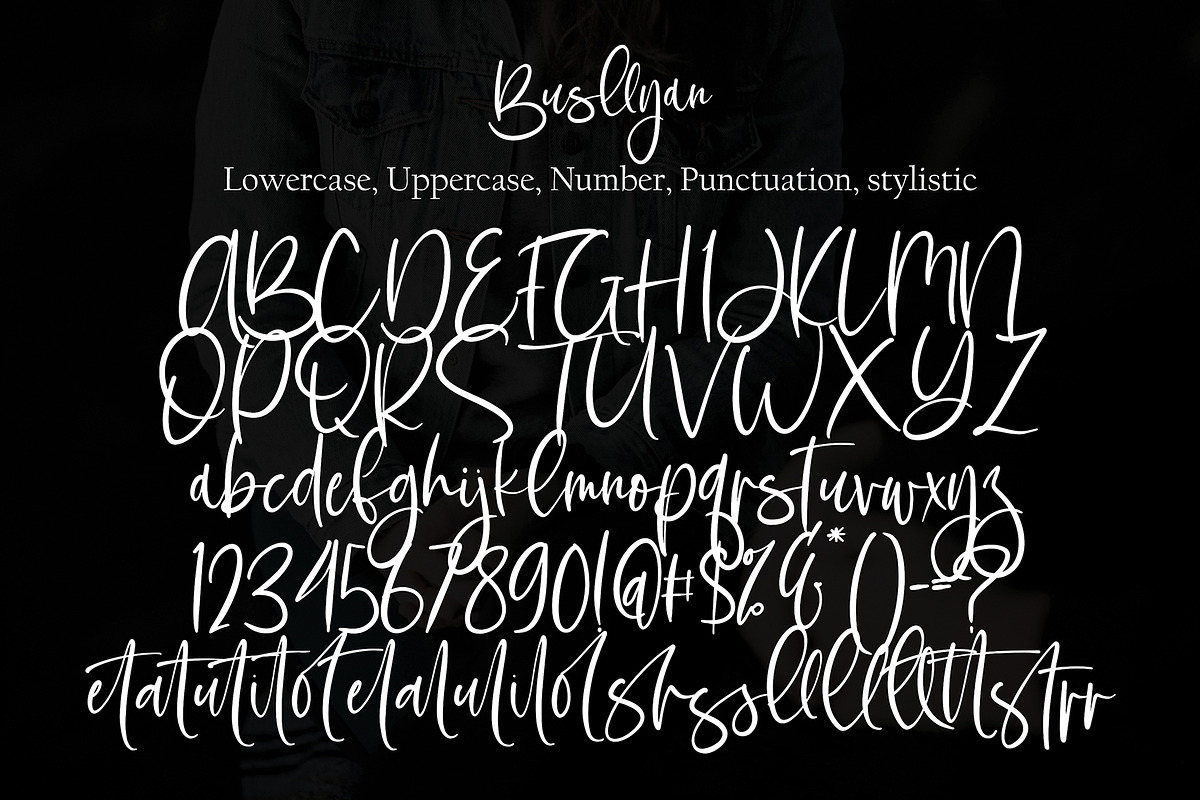 Busllyan
Lowercase, Uppercase, Number, Punctuation, stylistic
ABCDEFGHIJKLMN
OPQRSTUVWXYZ
abcdefghijklmnopqrstuvwxyz
1234567890!@#$%&*()-=?